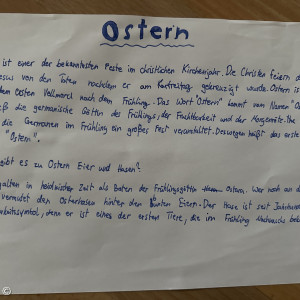 Ostern
ist einer der bekanntesten Feste im christlichen Kirchenjahr. Die Christen feiern d
esus von den Toten nachdem er am Karfreitag gekreuzigt wurde. Ostern is
dem ersten Vollmond nach dem Frühling. Das Wort "Ostern" kommt vom Name "Os
eß die germanische Göttin des Frühlings, der Fruchtbarkeit und der Morgenröte. Ihr
die Germanen im Frühling ein großes Fest veranstaltet. Deswegen heißt das erste
"Ostern".
gibt es zu Ostern Eier und Hasen?
galten in heidnischer Zeit als Boten der Frühlingsgöttin Ostern. Wer noch an de
vermutet den Osterhasen hinter den bunten Eiern. Der Hase ist seit Jahrhunde
arkeitssymbol, denn er ist eines der ersten Tiere, die im Frühling Nachwuchs beko